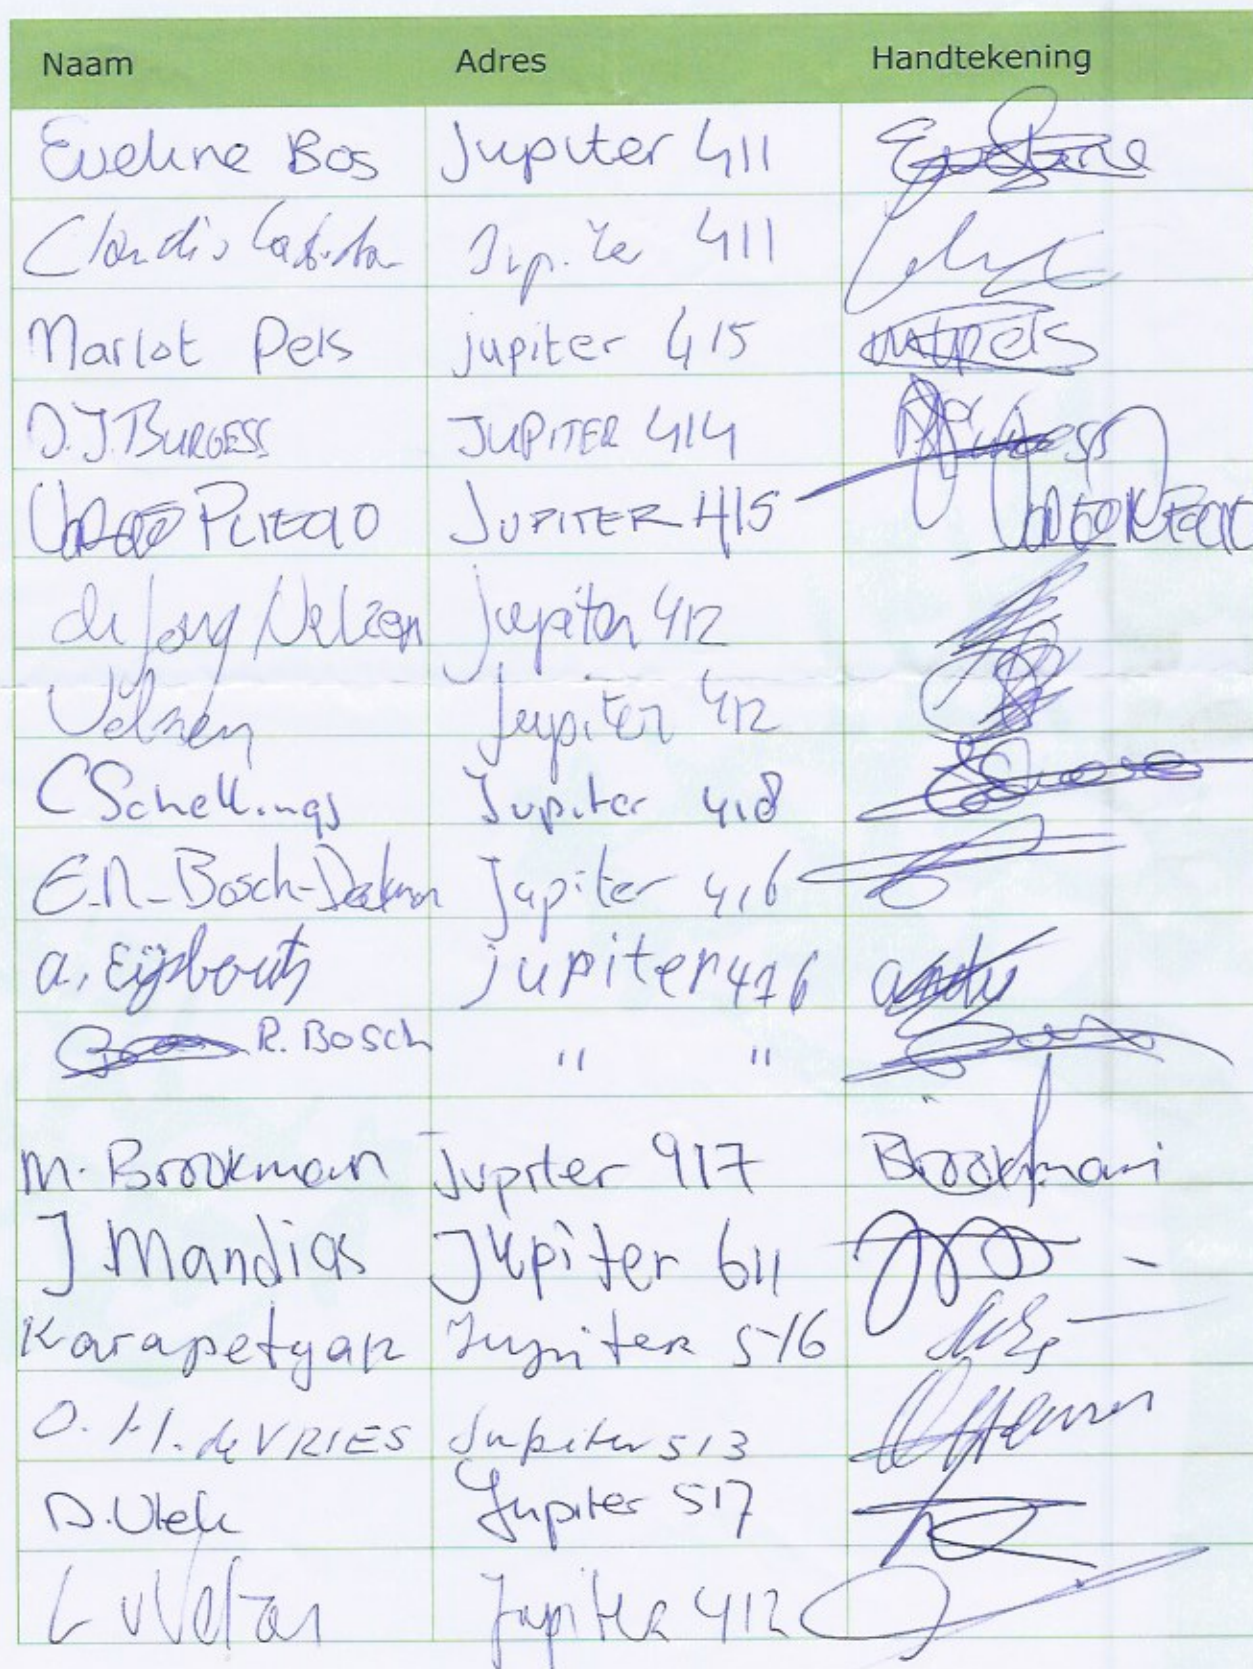 Naam Adres Handtekening
Eveline Bos Jupiter 411 Eveline
Jupiter 411
Marlot Pels jupiter 415 mtpels
D.J. BURGESS JUPITER 414 Burgess
JUPITER 415
de Jong / Velzen Jupiter 412
Velzen Jupiter 412
C Schellings Jupiter 418
E.M-Bosch- Jupiter 416
a. Eijsbouts jupiter 416
R. Bosch " "
M. Brookman Jupiter 917 Brookman
J Mandias Jupiter 611
Karapetyan Jupiter 516
O. H. de VRIES Jupiter 513
D. Jupiter 517
L v Velzen Jupiter 412